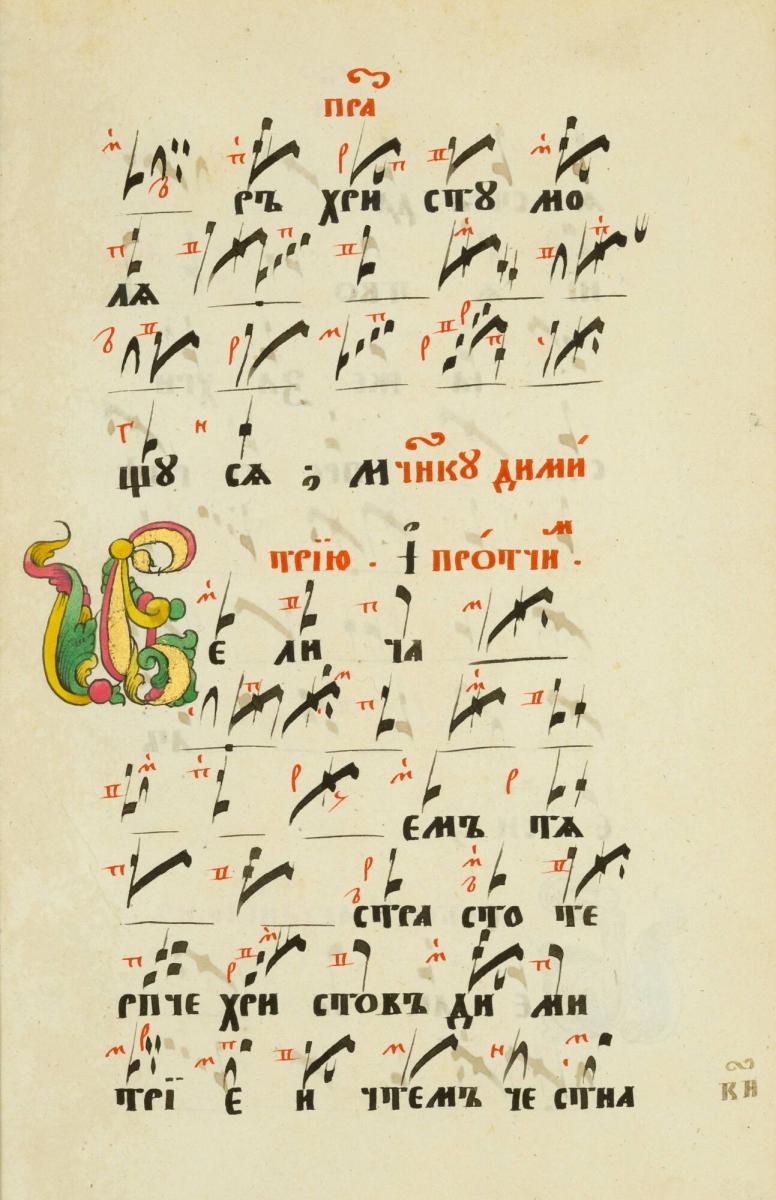 пра҃
ръ хри стꙋ мо
лѧ
щꙋ сѧ ; мчн҃кꙋ дими́
трїю . і про́тчим .
Ве ли ча
емъ тѧ
стра сто те
рпче хри стовъ ди ми
трїе и чтемъ че стна
к҃н